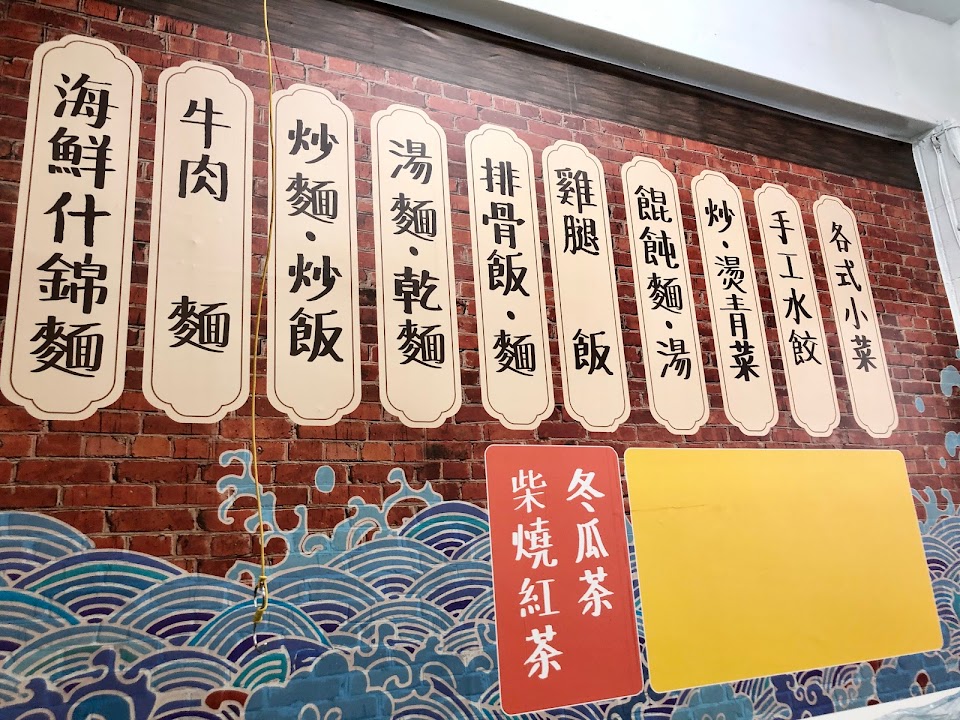 各式小菜
手工水餃
炒·燙青菜
餛飩麵·湯
雞腿飯
排骨飯·麵
湯麵·乾麵
炒麵·炒飯
牛肉麵
海鮮什錦麵
冬瓜茶
柴燒紅茶